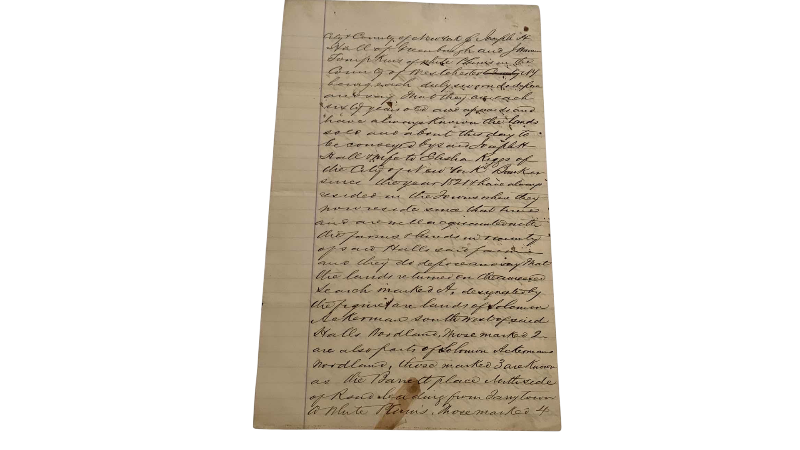 City & County of New York ss Joseph H
Hall of Greenburgh and James
Tompkins of White Plains in the
County of Westchester County NY
being each duly sworn do depose
and say that they are each
sixty years old and upwards and
have always known the lands
sold and about this day to
be conveyed by said Joseph H
Hall & wife to Elisha Riggs of
the City of New York Banker
since the year 1821 & have always
resided in the Towns where they
now reside since that time
and are well acquainted with
the farms & lands in vicinity
of said Halls said farm
and they do depose and say that
the lands returned on the annexed
Search marked A, designated by
the figure 1 are lands of Solomon
Ackerman south west of said
Halls Woodland. Those marked 2
are also parts of Solomon Ackermans
Woodland, those marked 3 are known
as the Barrett place North side
of Road leading from Tarrytown
to White Plains. Those marked 4